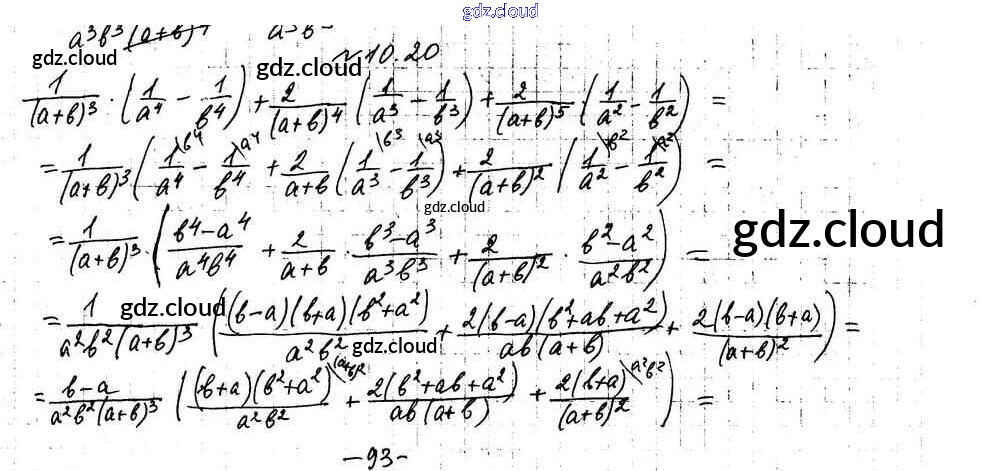 gdz.cloud
a³b³(a+b)⁴
gdz.cloud
№10.20
gdz.cloud
1/(a+b)³ · (1/a⁴ − 1/b⁴) + 2/(a+b)⁴ (1/a³ − 1/b³) + 2/(a+b)⁵ · (1/a² − 1/b²) =
= 1/(a+b)³ · (1\b⁴/a⁴ − 1\a⁴/b⁴ + 2/(a+b) (1\b³/a³ − 1\a³/b³) + 2/(a+b)² (1\b²/a² − 1\a²/b²) =
gdz.cloud
gdz.cloud
= 1/(a+b)³ · ((b⁴−a⁴)/(a⁴b⁴) + 2/(a+b) · (b³−a³)/(a³b³) + 2/(a+b)² · (b²−a²)/(a²b²)) =
gdz.cloud
= 1/(a²b²(a+b)³) ((b−a)(b+a)(b²+a²)/(a²b²) + 2(b−a)(b²+ab+a²)/(ab(a+b)) + 2(b−a)(b+a)/(a+b)²) =
gdz.cloud
= (b−a)/(a²b²(a+b)³) ((b+a)(b²+a²)\(a+b)²/(a²b²) + 2(b²+ab+a²)/(ab(a+b)) + 2(b+a)\a²b²/(a+b)²) =
−93−